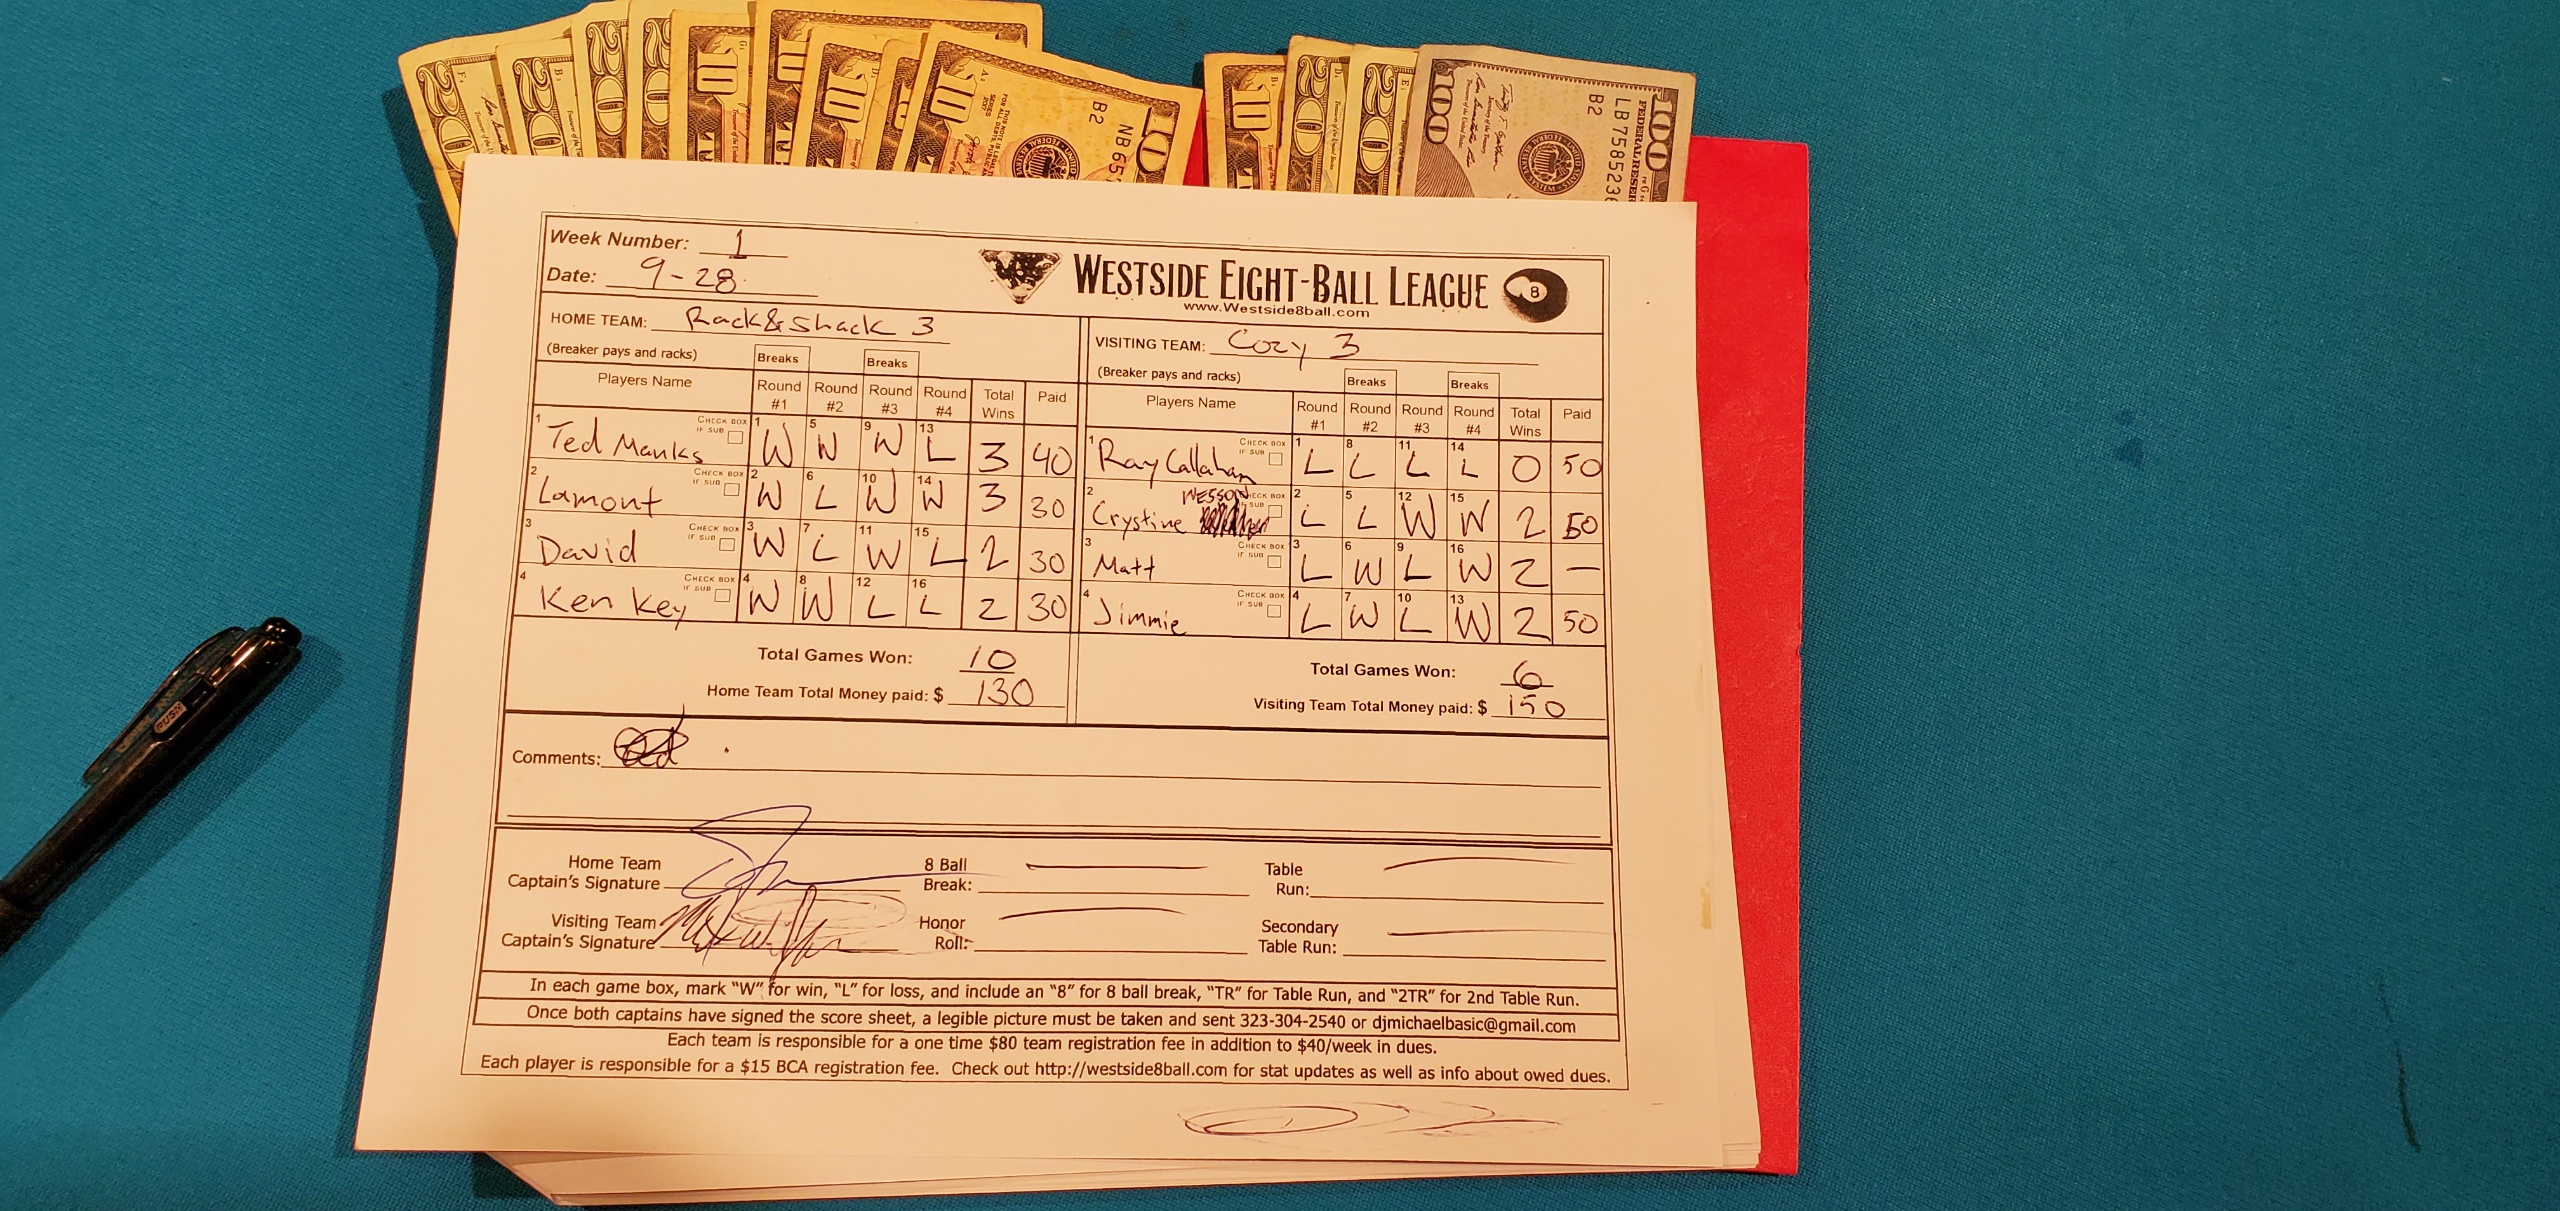 20 20 20 20 10 10 10 10 10 20 20 100 100
B2 NB655
B2 LB758523
FEDERAL RESERVE
Week Number: 1
Date: 9-28
WESTSIDE EIGHT-BALL LEAGUE 8
www.Westside8ball.com
HOME TEAM: Rack & Shack 3
VISITING TEAM: Cozy 3
(Breaker pays and racks) Breaks Breaks
(Breaker pays and racks) Breaks Breaks
Players Name Round #1 Round #2 Round #3 Round #4 Total Wins Paid
1 Ted Manks CHECK BOX IF SUB 1 W 5 W 9 W 13 L 3 40
2 Lamont CHECK BOX IF SUB 2 W 6 L 10 W 14 W 3 30
3 David CHECK BOX IF SUB 3 W 7 L 11 W 15 L 2 30
4 Ken Key CHECK BOX IF SUB 4 W 8 W 12 L 16 L 2 30
Total Games Won: 10
Home Team Total Money paid: $ 130
Players Name Round #1 Round #2 Round #3 Round #4 Total Wins Paid
1 Ray Callahan CHECK BOX IF SUB 1 L 8 L 11 L 14 L 0 50
2 Crystine WESSON CHECK BOX IF SUB 2 L 5 L 12 W 15 W 2 50
3 Matt CHECK BOX IF SUB 3 L 6 W 9 L 16 W 2 —
4 Jimmie CHECK BOX IF SUB 4 L 7 W 10 L 13 W 2 50
Total Games Won: 6
Visiting Team Total Money paid: $ 150
Comments:
Home Team Captain's Signature
8 Ball Break:
Table Run:
Visiting Team Captain's Signature
Honor Roll:
Secondary Table Run:
In each game box, mark "W" for win, "L" for loss, and include an "8" for 8 ball break, "TR" for Table Run, and "2TR" for 2nd Table Run.
Once both captains have signed the score sheet, a legible picture must be taken and sent 323-304-2540 or djmichaelbasic@gmail.com
Each team is responsible for a one time $80 team registration fee in addition to $40/week in dues.
Each player is responsible for a $15 BCA registration fee. Check out http://westside8ball.com for stat updates as well as info about owed dues.